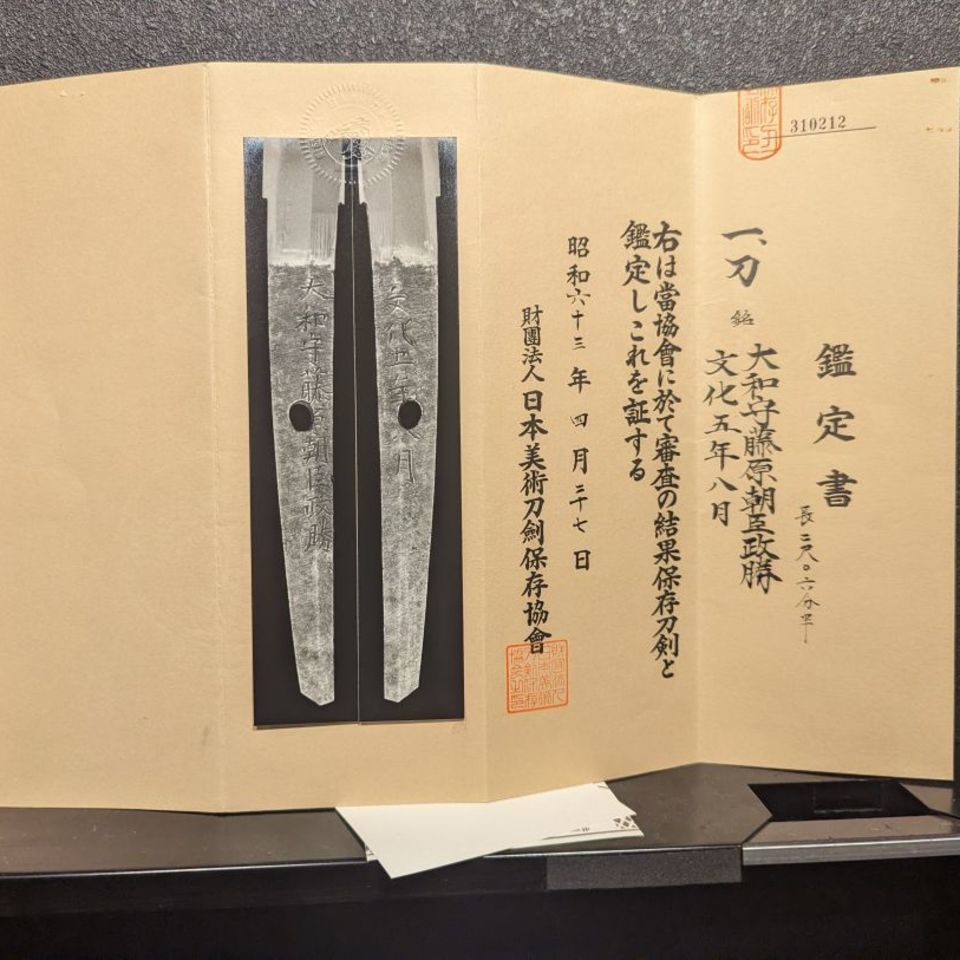 310212
鑑定書
長二尺〇六分半
一、刀
銘
大和守藤原朝臣政勝
文化五年八月
右は當協會に於て審査の結果保存刀剣と
鑑定しこれを証する
昭和六十三年四月二十七日
財團法人日本美術刀劍保存協會
文化五年八月
大和守藤原朝臣政勝